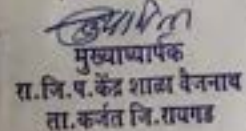 मुख्याध्यापक
रा.जि.प.केंद्र शाळा वैजनाथ
ता.कर्जत जि.रायगड